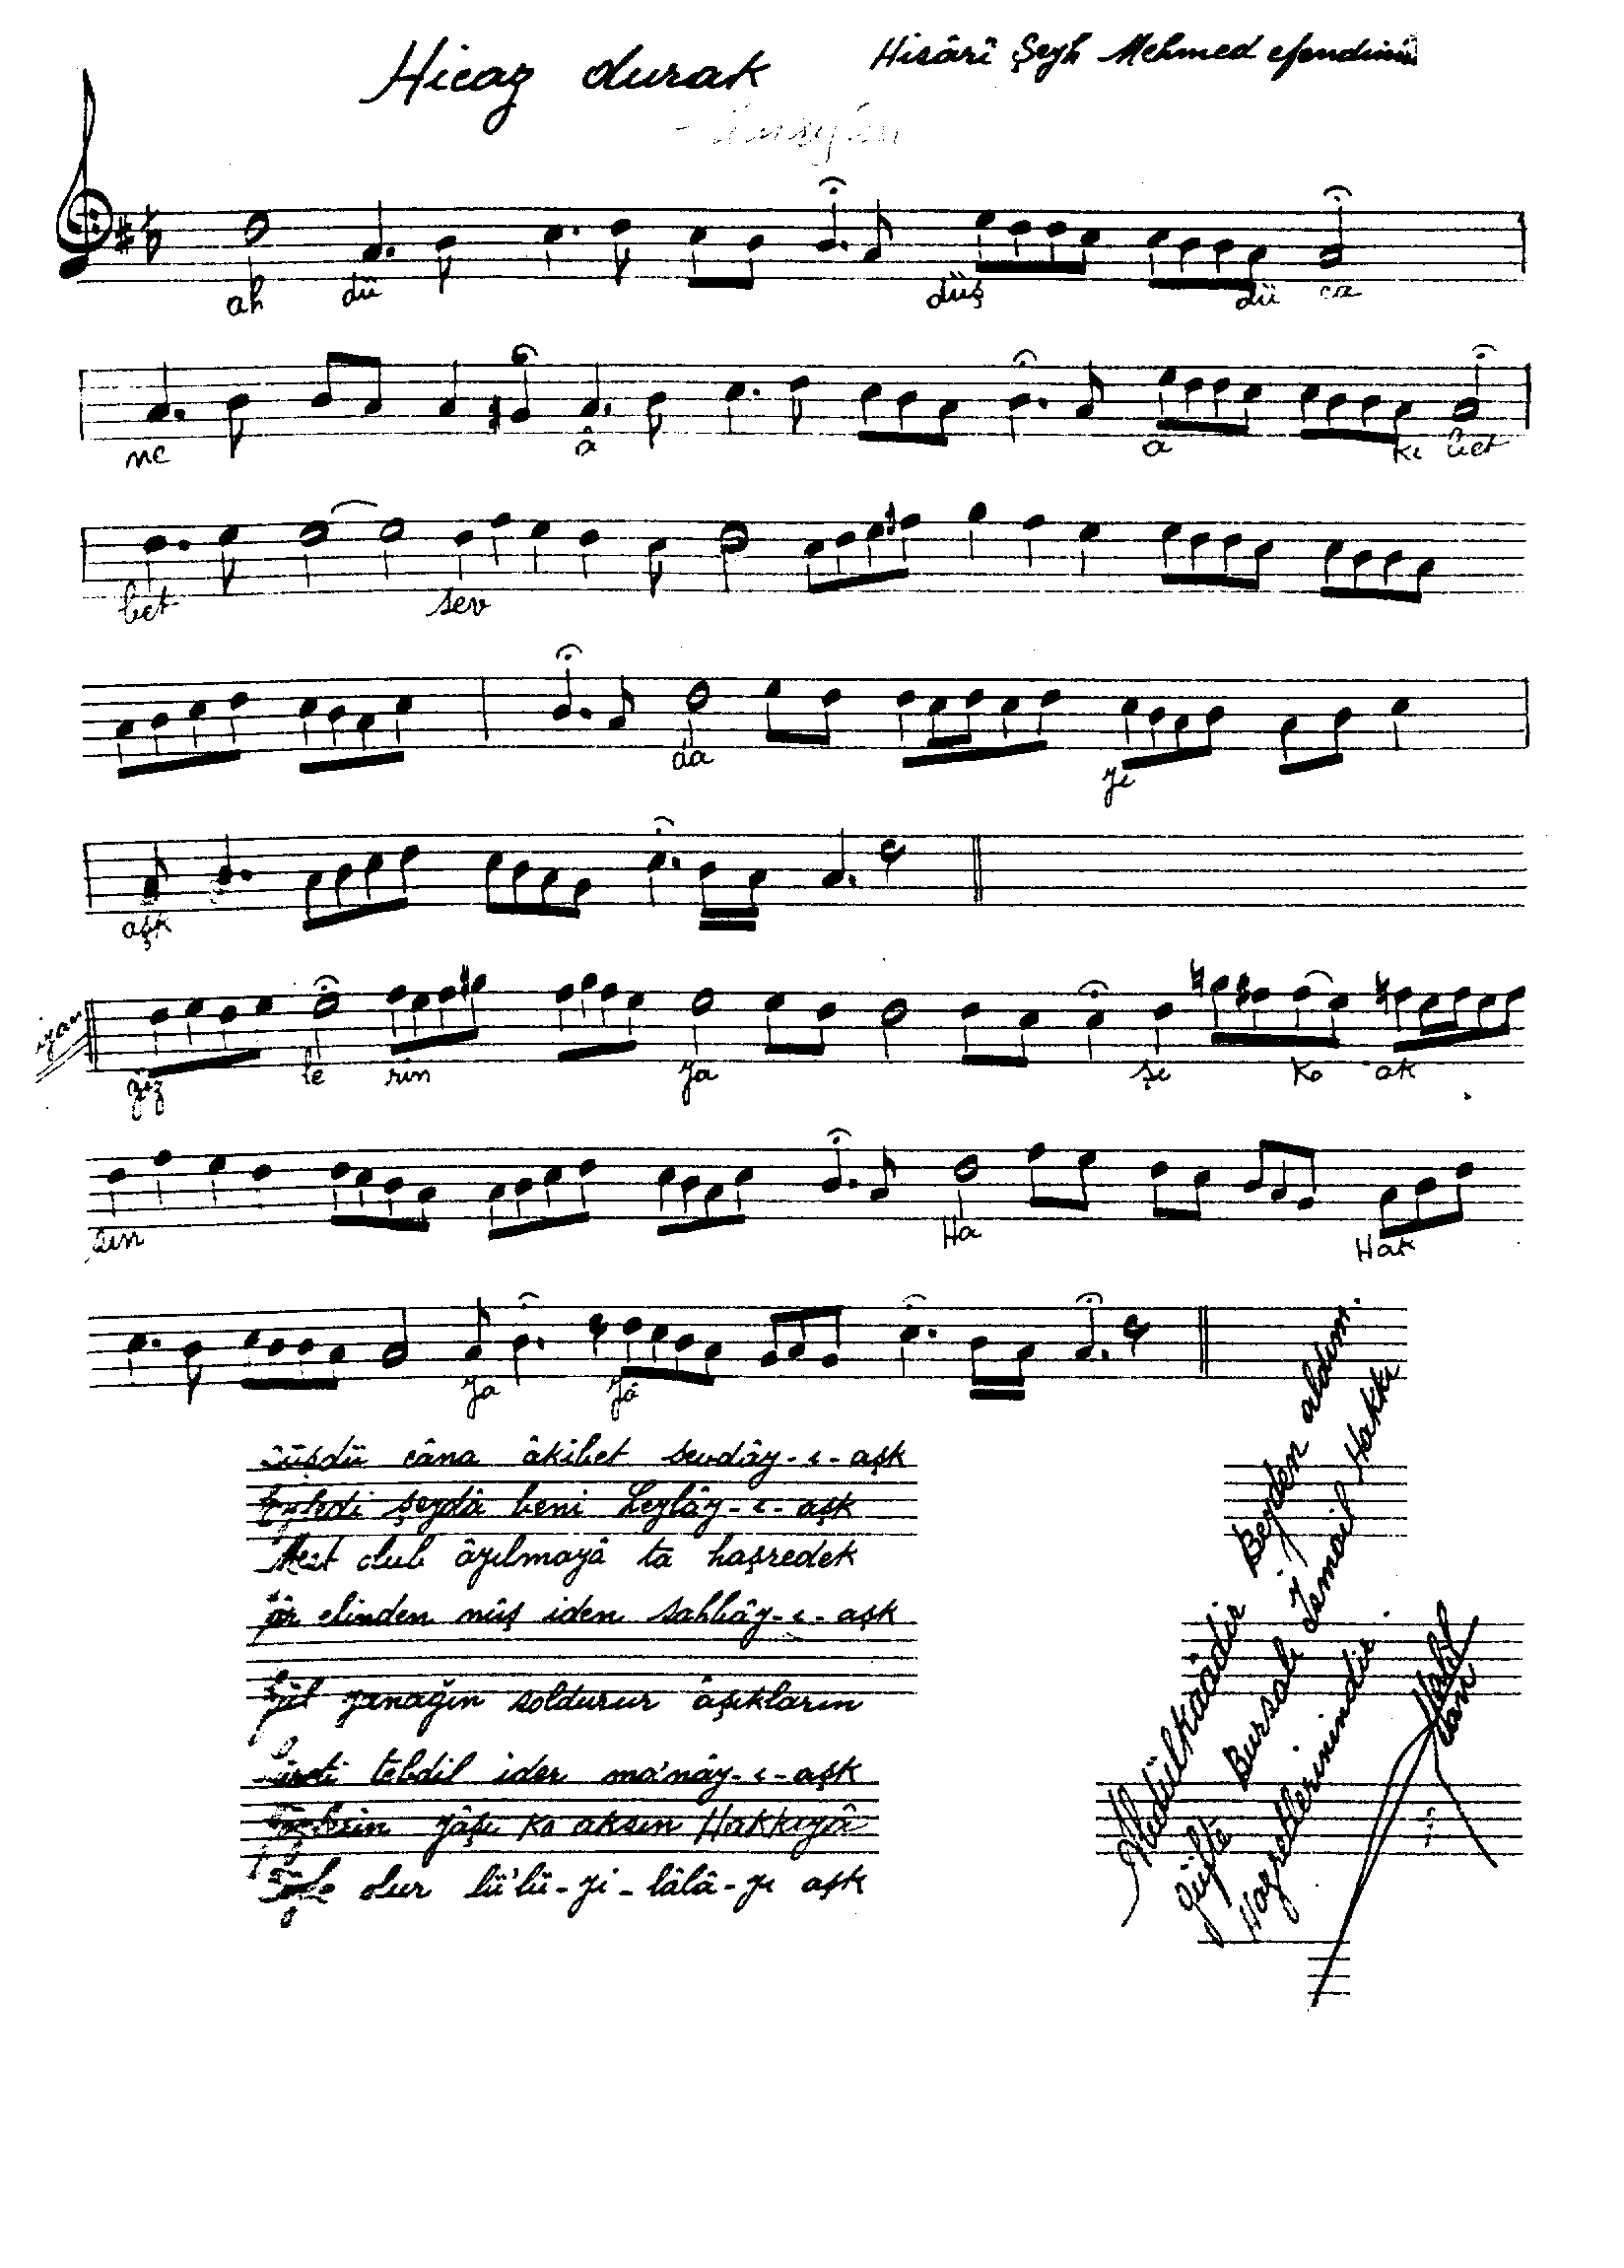 Hicaz durak
Hisârî Şeyh Mehmed efendinin
ah dü düş dü ca
ne â a ki bet
bet sev
da yı
aşk
göz le rin ya şı ko ak
sın Ha Hak
ya yâ
Düşdü câna âkibet sevdây-ı-aşk
Eyledi şeydâ beni Leylây-ı-aşk
Mest olub âyılmayâ ta haşredek
elinden nûş iden sahbây-ı-aşk
Gül yanağın soldurur âşıkların
tebdil ider ma'nây-ı-aşk
Gözlerin yâşı ko aksın Hakkıyâ
olur lü'lü-yi-lâlâ-yı aşk
Abdülkaadir Beyden aldım.
Güfte Bursalı İsmail Hakkı
Hazretlerinindir.
Halil Can